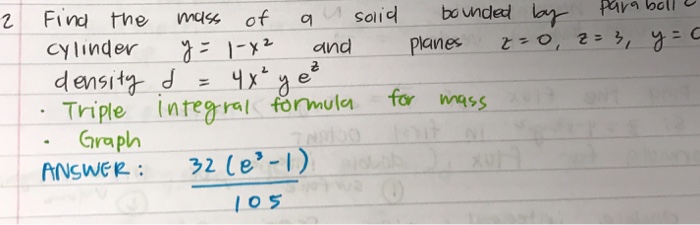 2 Find the mass of a solid bounded by parabolic
cylinder y = 1-x² and planes z = 0, z = 3, y = 0
density d = 4x² y e^z
· Triple integral formula for mass
· Graph
ANSWER: 32 (e³ - 1)
105